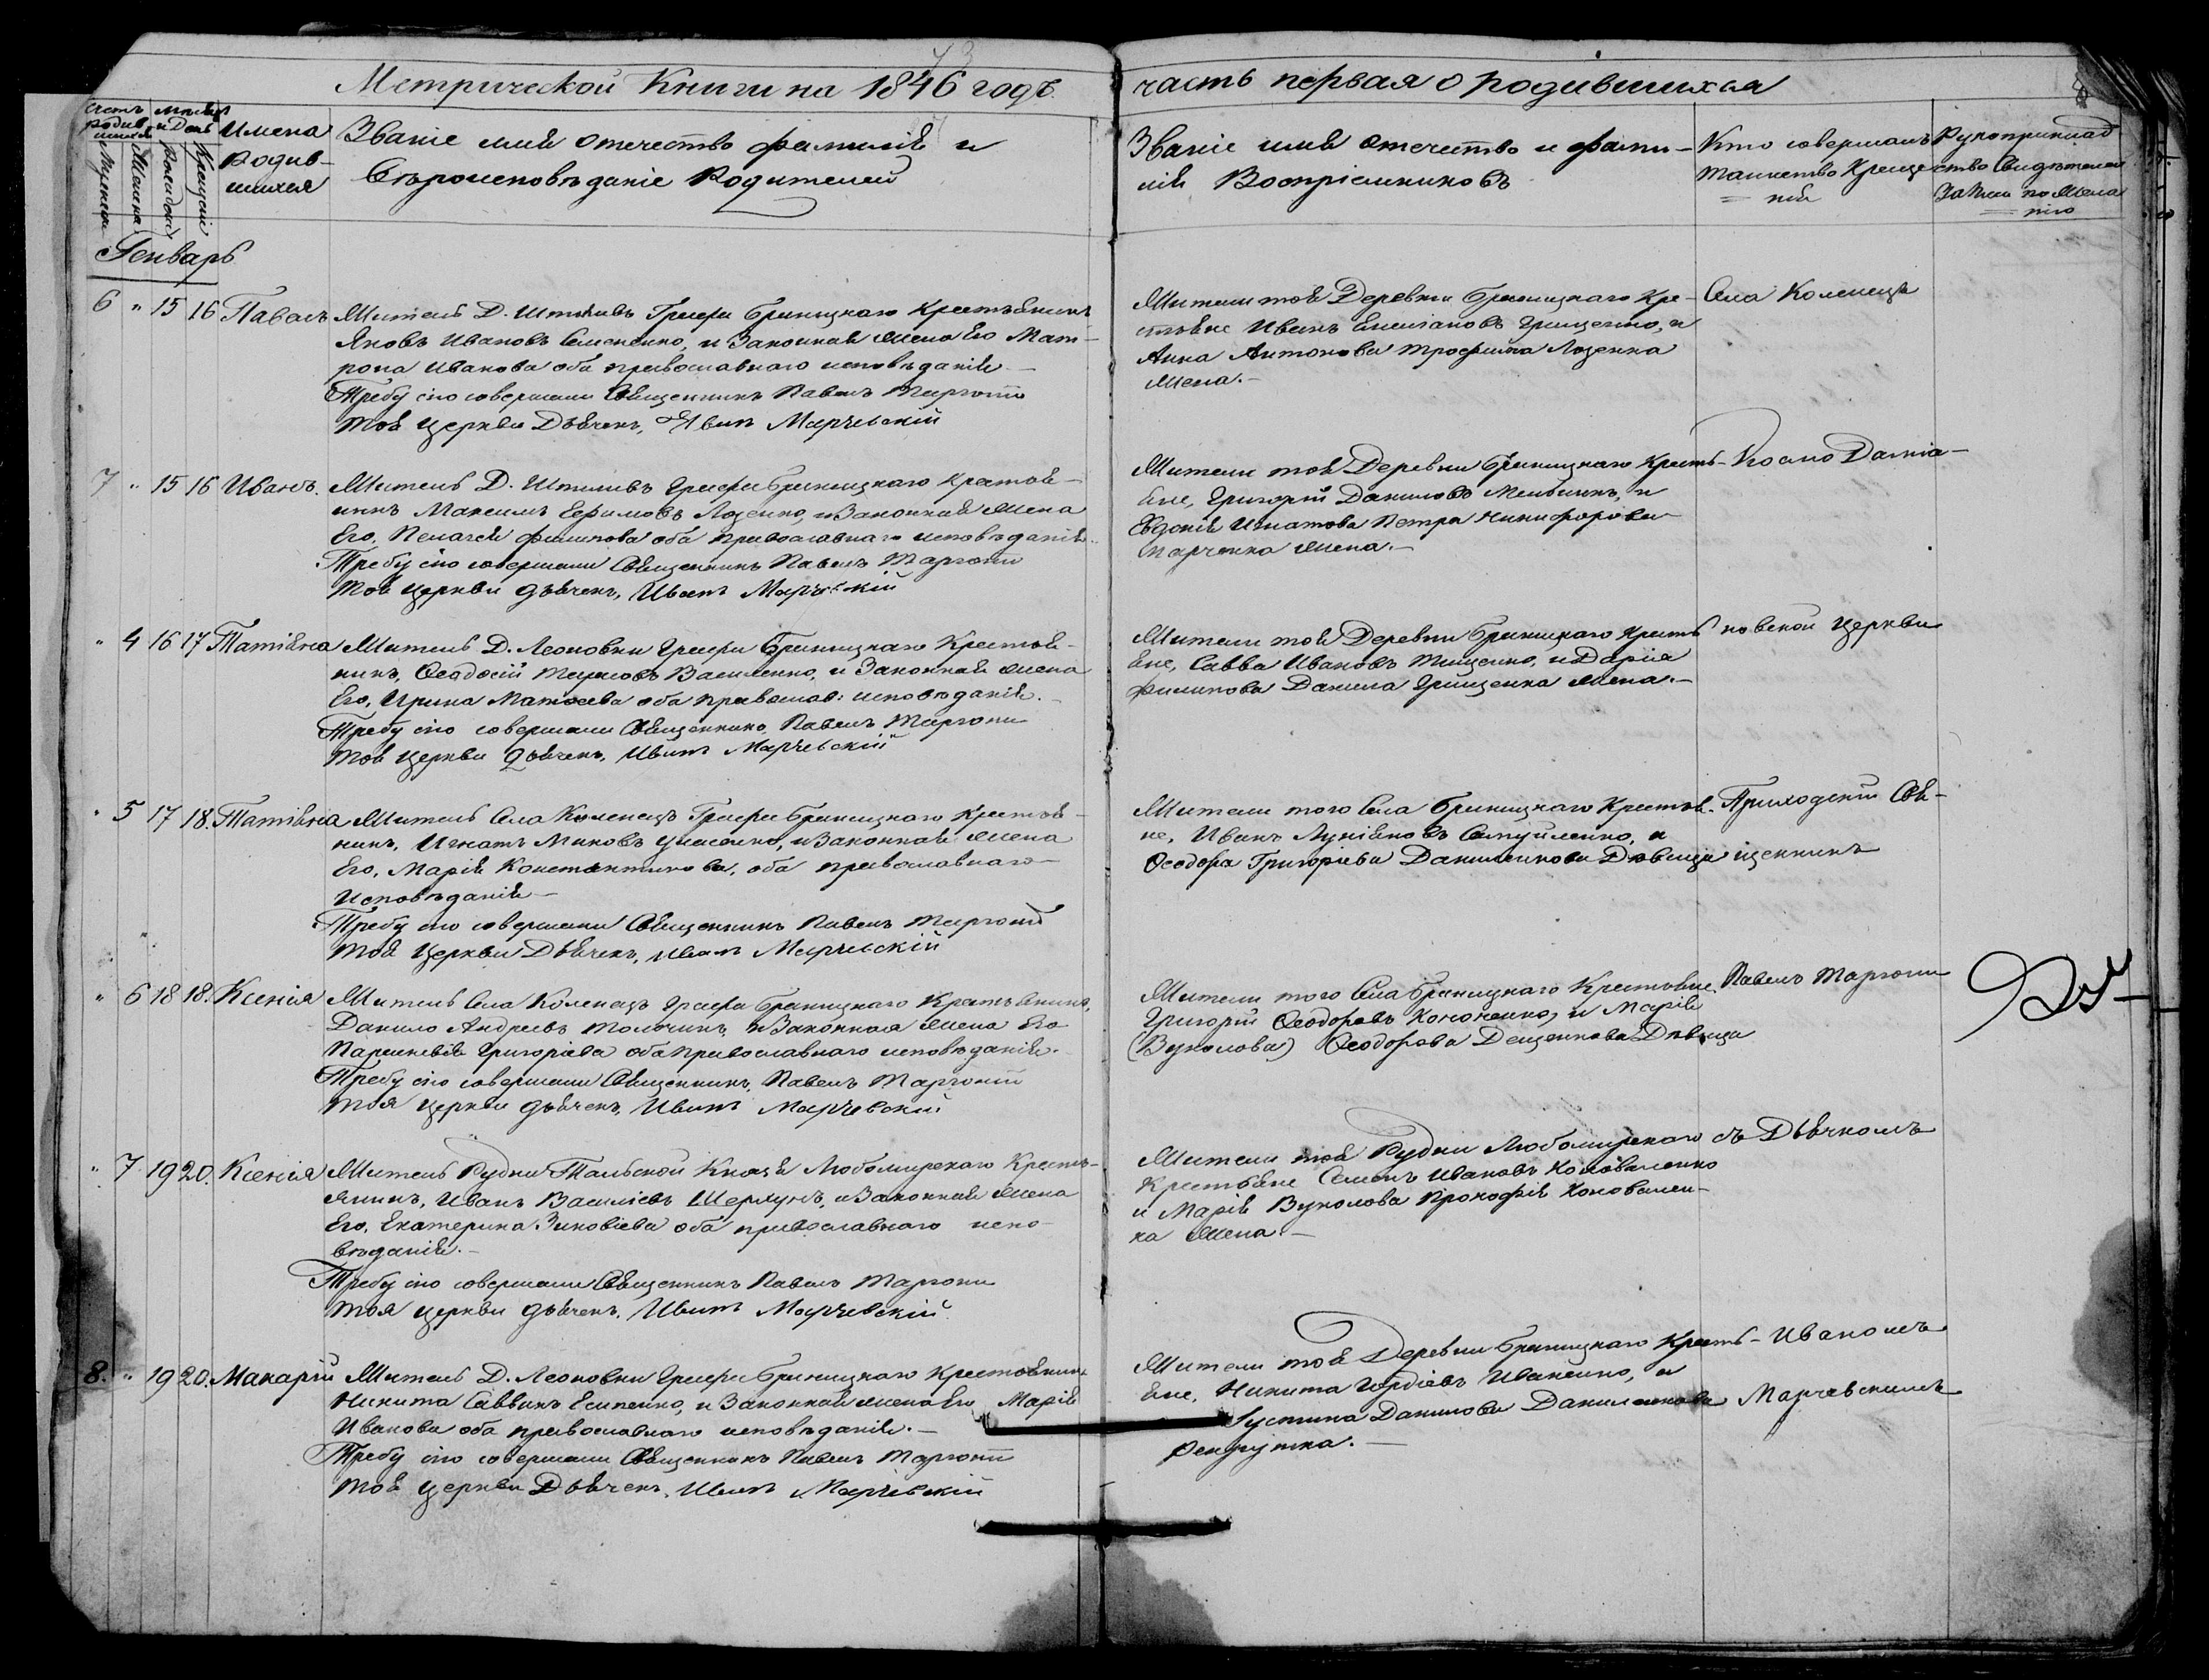 Метрической Книги на 1846 годъ.
часть первая о родившихся
Счетъ родив-шихся
Мужеска
Женска
Мѣсяцъ и День
Рожденія
Крещенія
Имена Родив-шихся
Званіе имя отечество фамилія и
Вѣроисповѣданіе Родителей
Званіе имя отечество и фами-
лія Воспріемниковъ
Кто совершалъ
таинство Креще-
нія
Рукоприклад
ство Свидѣтелей
записи по жела
нію
Генварь
6 " 15 16 Павелъ
Житель Д. Шпиливъ Графа Браницкаго Крестьянинъ
Яковъ Ивановъ Семененко, и Законная жена Его Мат-
рона Иванова оба православнаго исповѣданія
Требу сію совершали Священникъ Павелъ
Тоя Церкви Дьячекъ, Иванъ Марчевскій
Жители тоя Деревни Браницкаго Кре-
стьяне Иванъ Грищенко, и
Анна Антонова Трофима Лозенка
жена.-
Села Коленецъ
7 " 15 16 Иванъ.
Житель Д. Шпиливъ Графа Браницкаго Крестья-
нинъ Максимъ Ефимовъ Лозенко, и Законная жена
Его, Пелагея Филипова оба православнаго исповѣданія.
Требу сію совершали Священникъ Павелъ
Тоя Церкви дьячекъ, Иванъ Марчевскій
Жители тоя Деревни Браницкаго Кресть-
яне, Григорій Даниловъ Мельникъ, и
Евдокія Игнатова Петра Никифорова
Марченка жена.-
Космо Даміа-
" 4 16 17 Татіяна
Житель Д. Леоновки Графа Браницкаго Крестья-
нинъ, Феодосій Тарасовъ Василенко, и Законная жена
Его, Ирина Матфеева оба православ: исповѣданія.
Требу сію совершали Священникъ Павелъ
Тоя Церкви дьячекъ, Иванъ Марчевскій
Жители тоя Деревни Браницкаго Кресть
яне, Савва Ивановъ Тищенко, и Дарія
Филипова Данила Грищенка жена.-
новской Церкви
" 5 17 18. Татіяна
Житель Села Коленецъ Графа Браницкаго Крестья-
нинъ, Игнатъ и Законная жена
Его, Марія Константинова, оба православнаго
Исповѣданія
Требу сію совершали Священникъ Павелъ
Тоя Церкви Дьячекъ, Иванъ Марчевскій
Жители того Села Браницкаго Крестья-
не, Иванъ Лукіяновъ Самуйленко, и
Феодора Григоріева Даниленкова Дѣвица
Приходскій Свя-
щенникъ
" 6 18 18. Ксенія
Житель Села Коленецъ Графа Браницкаго Крестьянинъ,
Данило Андреевъ Толочинъ, и Законная жена Его
Параскевія Григоріева оба православнаго исповѣданія.
Требу сію совершали Священникъ, Павелъ
Тоя Церкви дьячекъ, Иванъ Марчевскій
Жители того Села Браницкаго Крестьяне.
Григорій Феодоровъ Кононенко, и Марія
(Вуколова) Феодорова Дещенкова Дѣвица
Павелъ
" 7 19 20. Ксенія
Житель Рудни Тальской Князя Любомирскаго Кресть-
янинъ, Иванъ Василіевъ Шерлунъ, и Законная жена
Его, Екатерина Зиновіева оба православнаго испо-
вѣданія.-
Требу сію совершали Священникъ Павелъ
Тоя Церкви дьячекъ, Иванъ Марчевскій
Жители тоя Рудни Любомирскаго
Крестьяне Семенъ Ивановъ Коноваленко
и Марія Вуколова Прокофія Коновален-
ка жена.-
съ Дьячкомъ
8. " 19 20. Макарій
Житель Д. Леоновки Графа Браницкаго Крестьянинъ
Никита Саввинъ Есипенко, и Законная жена Его Марія
Иванова оба православнаго исповѣданія.-
Требу сію совершали Священникъ Павелъ
Тоя Церкви Дьячекъ, Иванъ Марчевскій
Жители тоя Деревни Браницкаго Кресть-
яне, Никита Иваненко, и
Іустина Данилова Даниленкова
Рекрутка.-
Иваномъ
Марчевскимъ